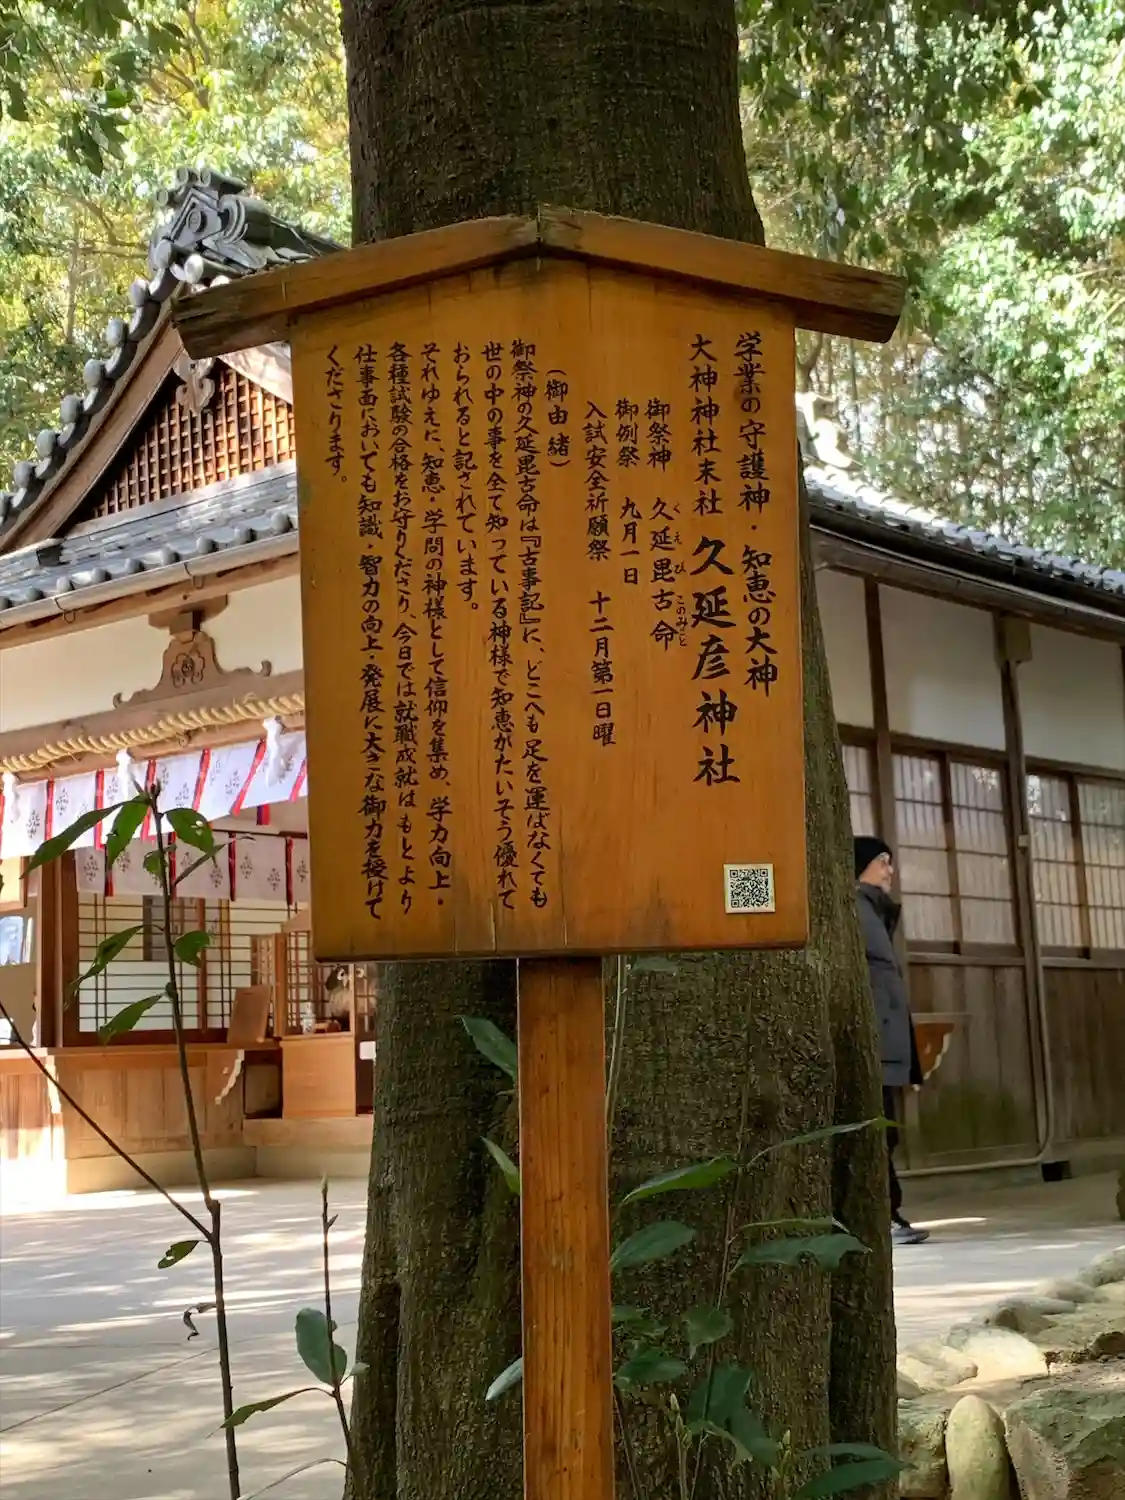 学業の守護神・知恵の大神
大神神社末社 久延彦神社
御祭神 久延毘古命
くえびこのみこと
御例祭 九月一日
入試安全祈願祭 十二月第一日曜
(御由緒)
御祭神の久延毘古命は『古事記』に、どこへも足を運ばなくても
世の中の事を全て知っている神様で知恵がたいそう優れて
おられると記されています。
それゆえに、知恵・学問の神様として信仰を集め、学力向上・
各種試験の合格をお守りくださり、今日では就職成就はもとより
仕事面においても知識・智力の向上・発展に大きな御力を授けて
くださります。